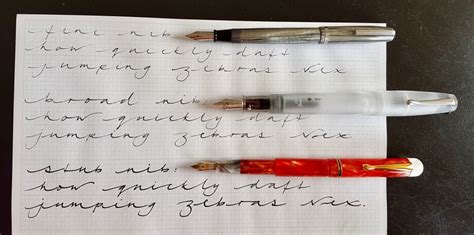 fine nib:
how quickly daft
jumping zebras vex
broad nib:
how quickly daft
jumping zebras vex
stub nib:
how quickly daft
jumping zebras vex.